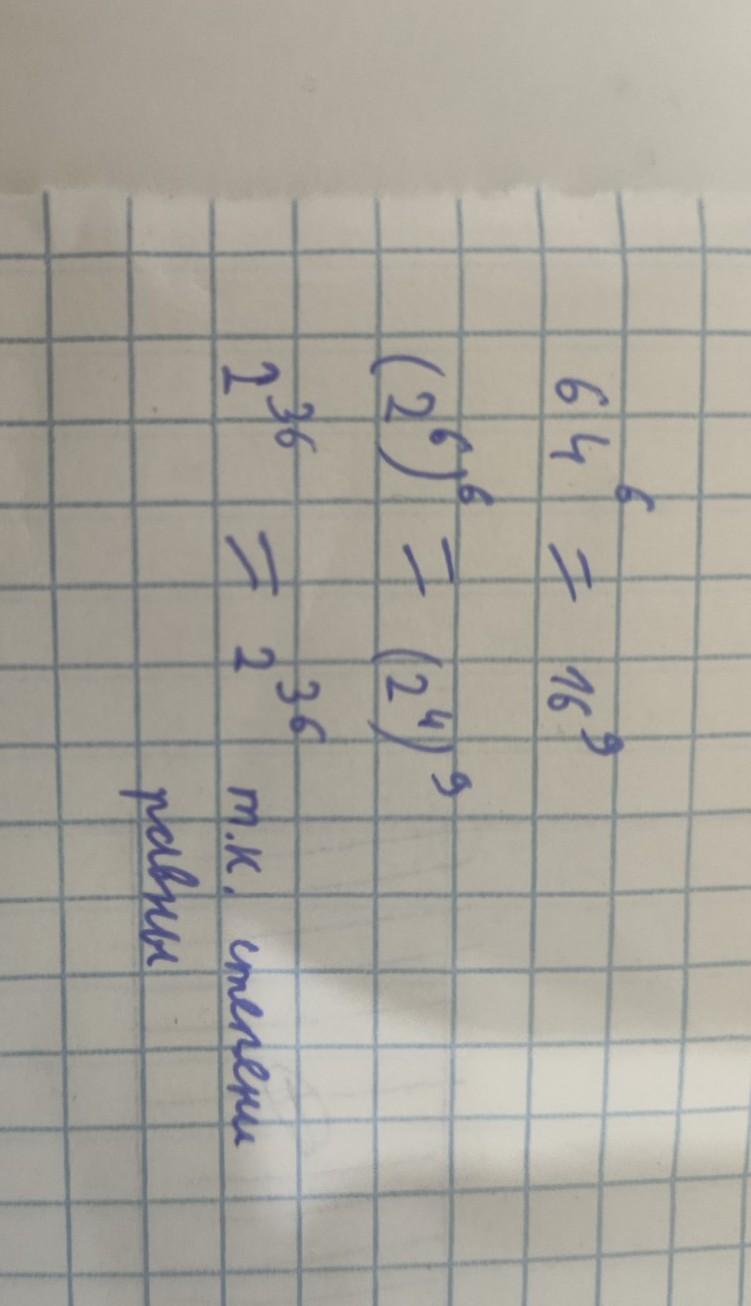 64⁶ = 16⁹
(2⁶)⁶ = (2⁴)⁹
2³⁶ = 2³⁶ т.к. степени
равны